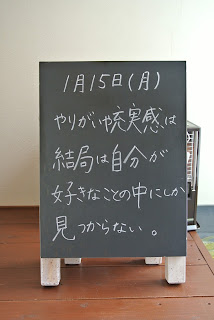 1月15日(月)
やりがいや充実感は
結局は自分が
好きなことの中にしか
見つからない。